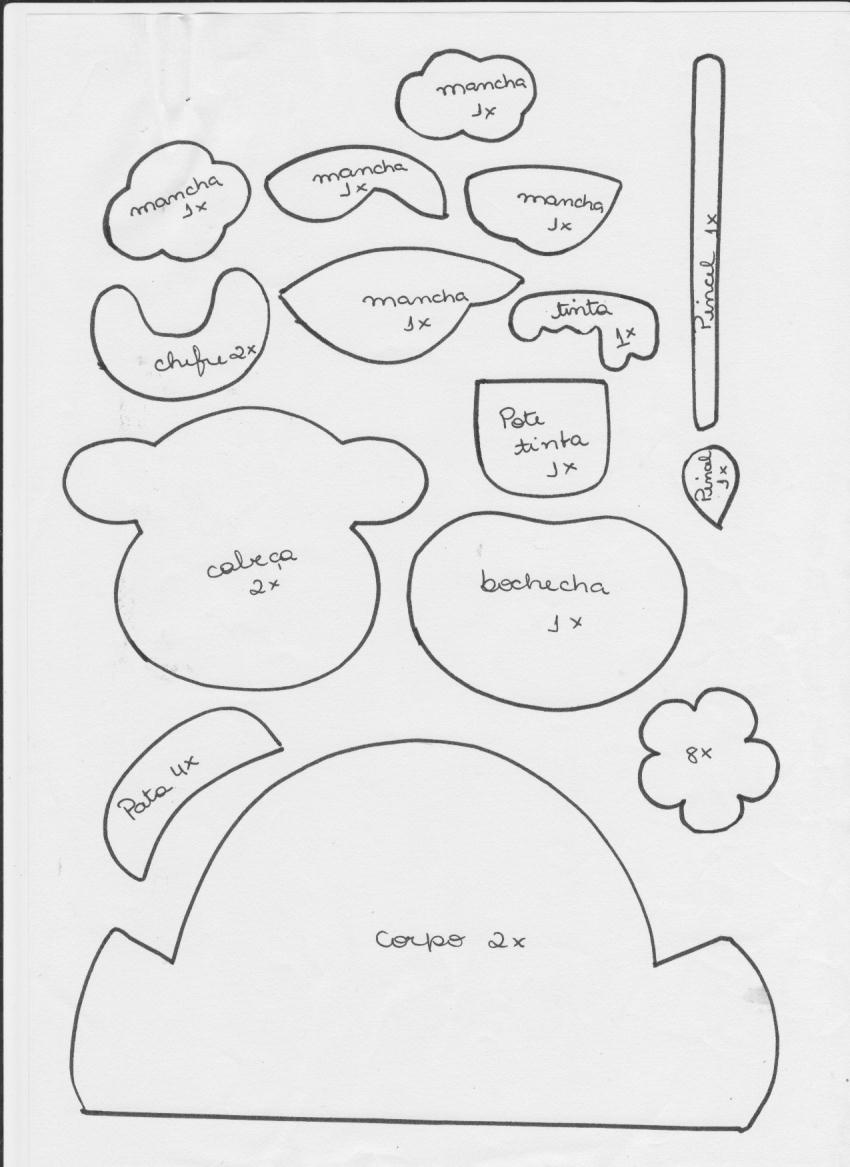 mancha
1x
mancha
1x
mancha
1x
mancha
1x
mancha
1x
tinta
1x
Pincel 1x
chifre 2x
Pote
tinta
1x
Pincel
1x
cabeça
2x
bochecha
1x
Pata 4x
8x
Corpo 2x